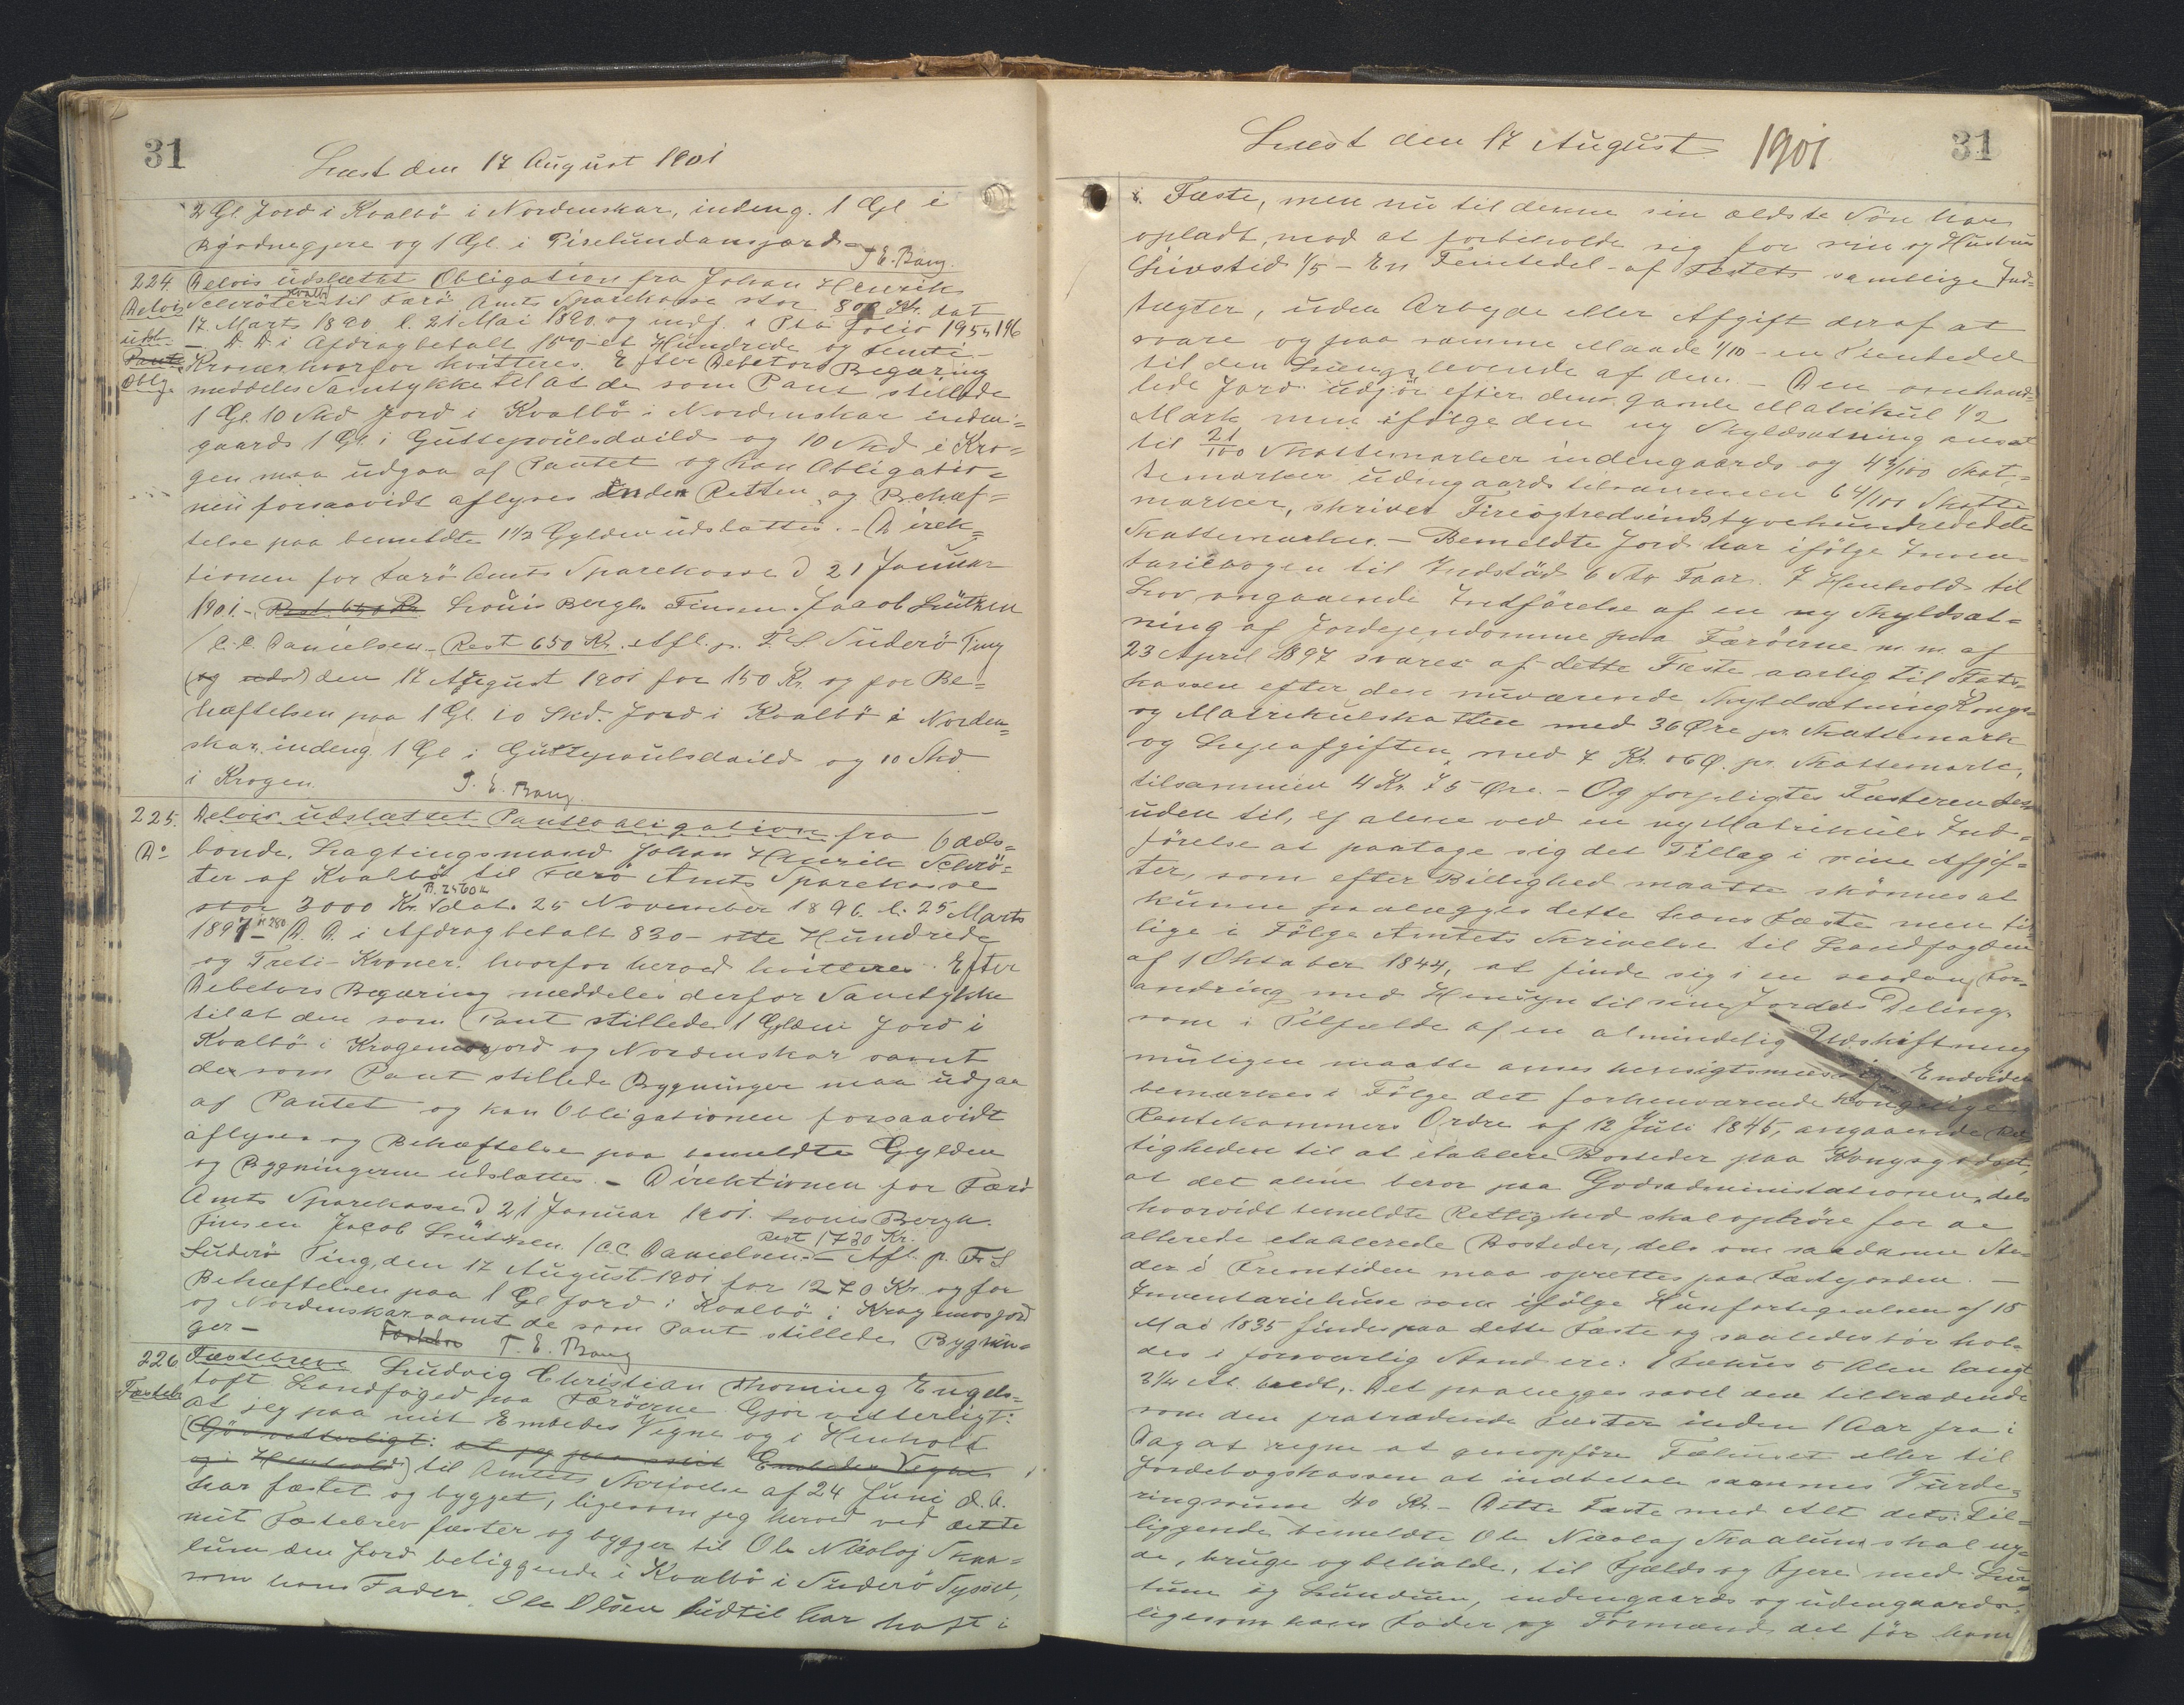 31
Læst den 17 August 1901
2 Gl Jord i Kvalbö i Nordenskar, indeng. 1 Gl i
og 1 Gl. i
T. E. Bang.
224 Delvis udslettet Obligation fra Johan Henrik
Delvis Schröter Kvalbö til Færö Amts Sparekasse stor 800 Kr. dat
udsl. 17. Marts 1890. l. 21 Mai 1890. og indf. i Ptb folio 195 n 196
Pante - D. D. i Afdrag betalt 150 et Hundrede og Femti-
Oblg. Kroner hvorfor kvitteres. Efter Debetors Begæring
meddeles Samtykke til at de som Pant stillede
1 Gl. 10 Skd Jord i Kvalbö i Nordenskar inden-
gaards 1 Gl. i Guttepoulsdeild og 10 Skd i Kro=
gen maa udgaa af Pantet og kan Obligatio=
nen forsaavidt aflyses inden Retten og Behæf=
telse paa bemeldte 1 1/2 Gylden udslettes. - Direk=
tionen for Færö Amts Sparekasse d 21 Januar
1901. - Rest. 650 Kr Louis Bergh. Finsen. Jacob Lützen
/ C. C. Danielsen - Rest 650 Kr. Afl. p. F. S. Suderö Ting
(og uds) den 17 August 1901 for 150 Kr og for Be=
hæftelsen paa 1 Gl. 10 Skd. Jord i Kvalbö i Norden=
skar. indeng 1 Gl i Guttepoulsdeild og 10 Skd
i Krogen
T. E. Bang.
225. Delvis udslettet Panteobligation fra Odels-
Do bonde, Lagtingsmand Johan Henrik Schrö=
ter af Kvalbö til Færö Amts Sparekasse
stor 3000 Kr. dat. 25 November 1896. l. 25 Marts
1897 - D. D. i Afdrag betalt 830 - otte Hundrede
og Treti - Kroner. hvorfor herved kvitteres. Efter
Debetors Begæring meddeles derfor Samtykke
til at den som Pant stillede 1 Gylden Jord i
Kvalbö i Krogemosjord og Nordenskar samt
de som Pant stillede Bygninger maa udgaa
af Pantet og kan Obligationen forsaavidt
aflyses og Behæftelse paa bemeldte Gylden
og Bygningerne udslettes. - Direktionen for Færö
Amts Sparekasse d 21 Januar 1901. Louis Bergh.
Finsen Jacob Lützen / C. C. Danielsen. - Rest 1730 Kr. Afl. p. F. S
Suderö Ting, den 17 August 1901 for 1270 Kr. og for
Behæftelsen paa 1 Gl Jord i Kvalbö i Krogemosjord
og Nordenskar samt de som Pant stillede Bygnin=
ger -
T. E. Bang
226 Fæstebrev Ludvig Christian Thoming Engels=
Fæsteb toft Landfoged paa Færöerne Gjör vitterligt:
At jeg paa mit Embedes Vegne og i Henhold
(Gör vitterligt: at jeg paa mit Embedes Vegne
og i Henhold) til Amtets Skrivelse af 24 Juni d. A.
har fæstet og bygget, ligesom jeg herved ved dette
mit Fæstebrev fæster og bygger til Ole Nicolaj Skaa=
lum den Jord beliggende i Kvalbö i Suderö Syssel,
som hans Fader, Ole Olsen hidtil har haft i
Læst den 17 August 1901
31
i Fæste, men nu til denne sin ældste Sön har
opladt, mod at forbeholde sig for sin og Hustrus
Livstid 1/5 - En Femtedel - af Fæstets samtlige Ind-
tægter, uden Arbejde eller Afgift deraf at
svare og paa samme Maade 1/10 - en Tiendedel
til den Længstlevende af dem. - Den omhand-
lede Jord udgjör efter den gamle Matrikul 1/2
Mark men ifölge den ny Skyldsætning ansat
til 21/100 Skattemarker indengaards og 43/100 Skat-
temarker udengaards tilsammen 64/100 Skatte
marker, skriver Fireogtredsindstyvehundrededele
Skattemarker. - Bemeldte Jord har ifölge Inven-
tariebogen til Indstöd 6 Stk Faar. I Henhold til
Lov angaaende Indförelse af en ny Skyldsæt=
ning af Jordejendomme paa Færöerne m. m. af
23 April 1897 svares af dette Fæste aarlig til Stats-
kassen efter den nuværende Skyldsætning Konge-
og Matrikulskatten med 36 Øre pr. Skattemark
og Lejeafgiften med 7 Kr. 06 Ø. pr. Skattemark,
tilsammen 4 Kr. 75 Øre. - Og forpligtes Fæsteren des-
uden til, ej alene ved en ny Matrikuls Ind=
förelse at paatage sig det Tillæg i sine Afgif=
ter, som efter Billighed maatte skönnes at
kunne paalægges dette hans Fæste men til
lige i Fölge Amtets Skrivelse til Landfogden
af 1 Oktober 1844, at finde sig i en saadan For-
andring med Hensyn til sine Jorders Deling,
som i Tilfælde af en almindelig Udskiftning
muligen maatte anses hensigtsmæssig. Endvidere
bemærkes i Fölge det forhenværende kongelige
Rentekammers Ordre af 12 Juli 1845, angaaende Ret-
tigheden til at etablere Bosteder paa Kongsgodset,
at det alene beror paa Godsadministationen, dels
hvorvidt bemeldte Rettighed skal ophöre for de
allerede etablerede Bosteder, dels om saadanne Ste-
der i Fremtiden maa oprettes paa Fæstejorden. -
Inventariehuse som ifölge Husfortegnelsen af 18
Mai 1835 findes paa dette Fæste og saaledes bör hol-
des i forsvarlig Stand ere: 1 Fæhus 5 Alen langt
3 1/4 Al. bredt. Det paalægges saavel den tiltrædende
som den fratrædende Fæster inden 1 Aar fra i
Dag at regne at genopföre Fæhuset eller til
Jordebogskassen at indbetale sammes Vurde=
ringssum 40 Kr. - Dette Fæste med Alt dets Til=
liggende bemeldte Ole Nicolaj Skaalum skal ny-
de, bruge og beholde, til Fjælds og Fjære med Lut-
tum og Lundum, indengaards og udengaards,
ligesom hans Fader og Formænd det för ham